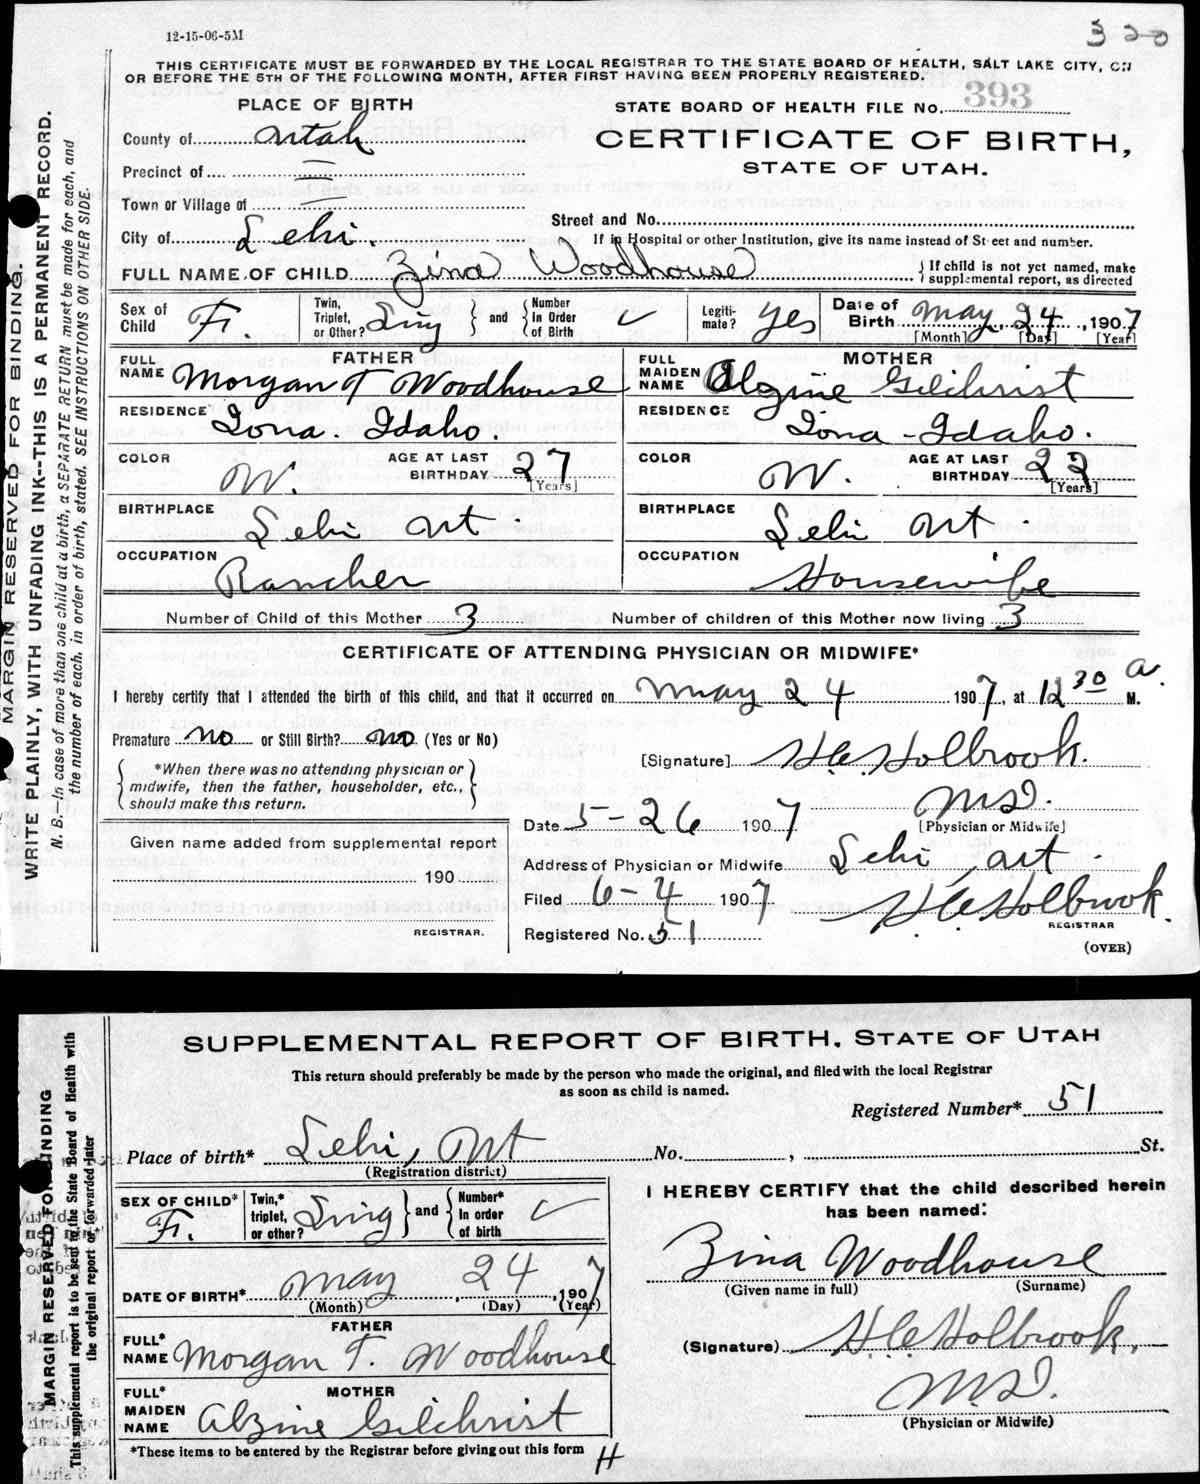 320
12-15-06-5M
THIS CERTIFICATE MUST BE FORWARDED BY THE LOCAL REGISTRAR TO THE STATE BOARD OF HEALTH, SALT LAKE CITY, ON
OR BEFORE THE 5TH OF THE FOLLOWING MONTH, AFTER FIRST HAVING BEEN PROPERLY REGISTERED.
PLACE OF BIRTH
STATE BOARD OF HEALTH FILE NO. 393
County of Utah
CERTIFICATE OF BIRTH,
STATE OF UTAH.
Precinct of
Town or Village of
Street and No.
City of Lehi.
If in Hospital or other Institution, give its name instead of Street and number.
FULL NAME OF CHILD Zina Woodhouse { If child is not yet named, make supplemental report, as directed
Sex of Child F. Twin, Triplet, or Other? Sing } and { Number In Order of Birth ✓ Legitimate? Yes Date of Birth May 24, 1907
[Month] [Day] [Year]
FATHER
FULL NAME Morgan T Woodhouse
RESIDENCE Iona. Idaho.
COLOR W. AGE AT LAST BIRTHDAY 27 [Years]
BIRTHPLACE Lehi Ut
OCCUPATION Rancher
MOTHER
FULL MAIDEN NAME Alzine Gilchrist
RESIDENCE Iona - Idaho.
COLOR W. AGE AT LAST BIRTHDAY 22 [Years]
BIRTHPLACE Lehi Ut
OCCUPATION Housewife
Number of Child of this Mother 3 Number of children of this Mother now living 3
CERTIFICATE OF ATTENDING PHYSICIAN OR MIDWIFE*
I hereby certify that I attended the birth of this child, and that it occurred on May 24 1907, at 12 30 a. M.
Premature no or Still Birth? no (Yes or No)
[Signature] H.C. Holbrook.
M.D.
[Physician or Midwife]
*When there was no attending physician or
midwife, then the father, householder, etc.,
should make this return.
Date 5-26 1907
Given name added from supplemental report
190
REGISTRAR.
Address of Physician or Midwife Lehi, Ut.
Filed 6-4 1907 H.C. Holbrook.
REGISTRAR
Registered No. 51
(OVER)
MARGIN RESERVED FOR BINDING.
WRITE PLAINLY, WITH UNFADING INK--THIS IS A PERMANENT RECORD.
N. B.--In case of more than one child at a birth, a SEPARATE RETURN must be made for each, and
the number of each, in order of birth, stated. SEE INSTRUCTIONS ON OTHER SIDE.
SUPPLEMENTAL REPORT OF BIRTH, STATE OF UTAH
This return should preferably be made by the person who made the original, and filed with the local Registrar
as soon as child is named.
Registered Number* 51
Place of birth* Lehi, Ut No. , St.
(Registration district)
SEX OF CHILD* F. Twin,* triplet, or other? Sing } and { Number* In order of birth ✓
DATE OF BIRTH* May, 24, 1907
(Month) (Day) (Year)
FATHER
FULL* NAME Morgan T. Woodhouse
MOTHER
FULL* MAIDEN NAME Alzine Gilchrist
*These items to be entered by the Registrar before giving out this form H
I HEREBY CERTIFY that the child described herein
has been named:
Zina Woodhouse
(Given name in full) (Surname)
(Signature) H.C. Holbrook,
M.D.
(Physician or Midwife)
MARGIN RESERVED FOR BINDING
This supplemental report is to be sent to the State Board of Health with
the original report or forwarded later